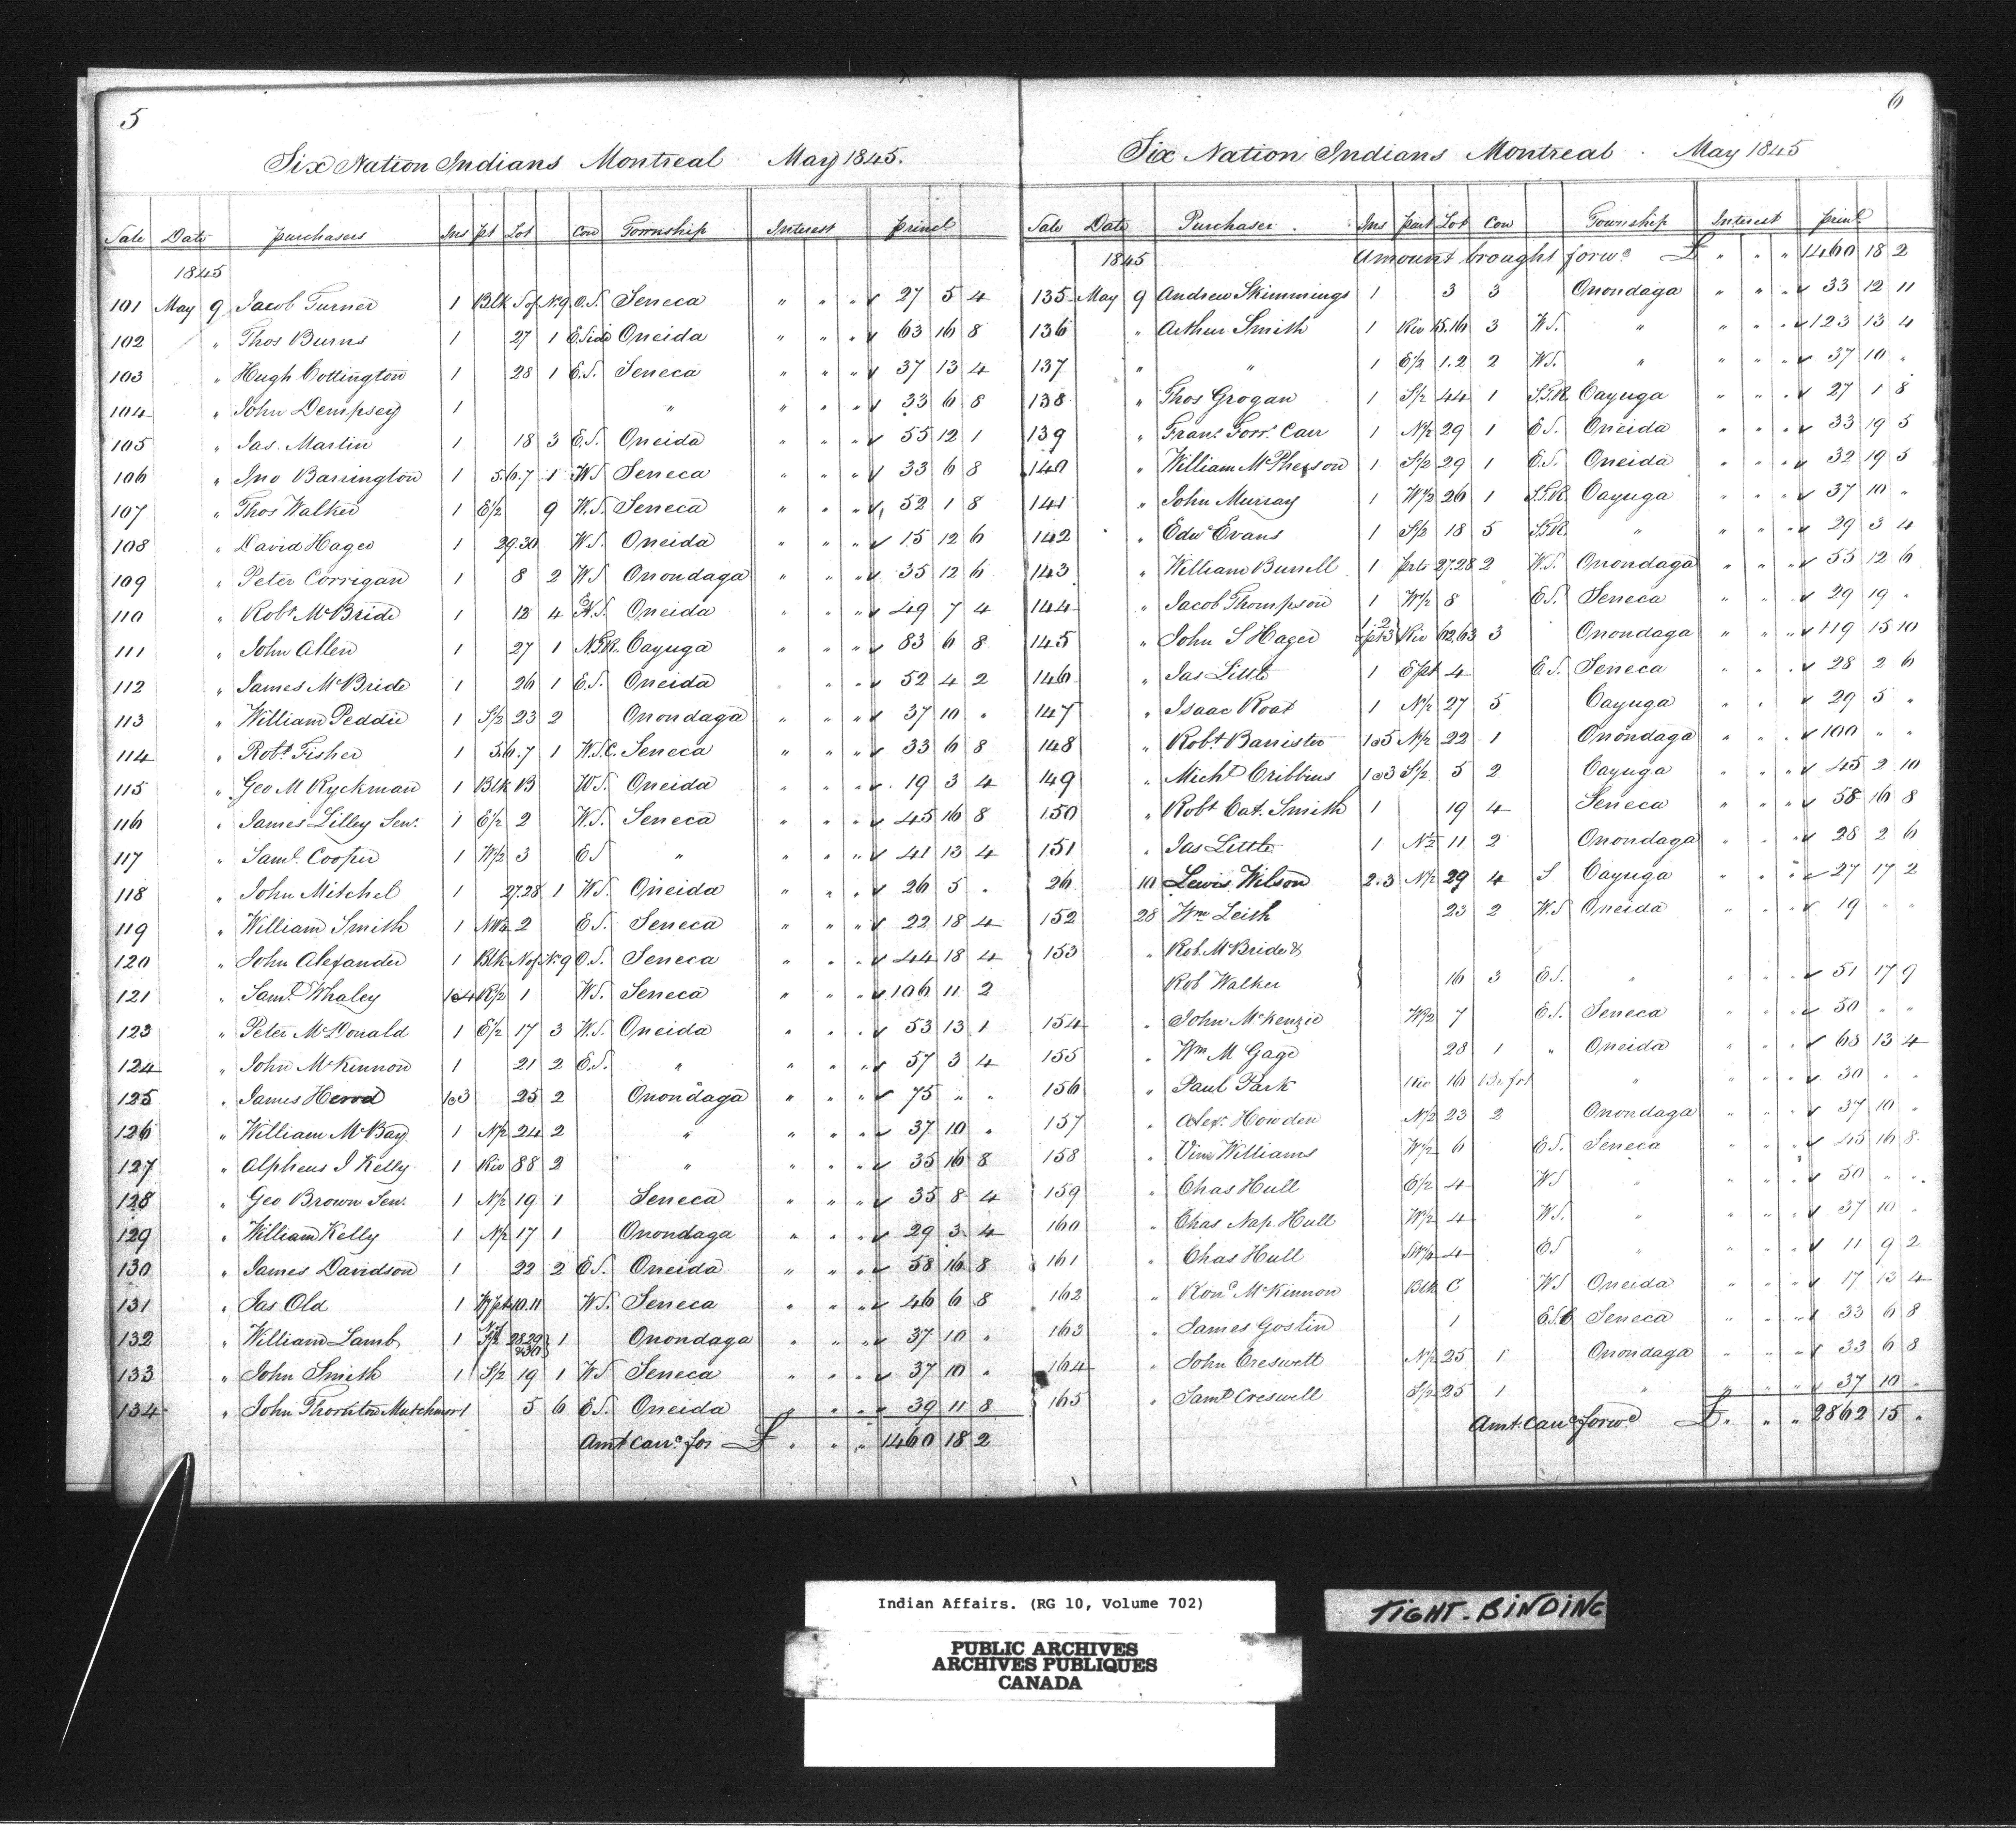 5
Six Nation Indians Montreal May 1845.
Sale Date purchasers Ins Pt Lot Con Township Interest princl
1845
101 May 9 Jacob Turner 1 Blk S of No 9 O.S. Seneca " " " 27 5 4
102 " Thos Burns 1 27 1 E Side Oneida " " " 63 16 8
103 " Hugh Cottington 1 28 1 E.S. Seneca " " " 37 13 4
104 " John Dempsey 1 " " " " 33 6 8
105 " Jas. Martin 1 18 3 E.S. Oneida " " " 55 12 1
106 " Jno Barrington 1 5.6.7 1 W.S Seneca " " " 33 6 8
107 " Thos Walker 1 E1/2 9 W.S. Seneca " " " 52 1 8
108 " David Hager 1 29.30 W.S. Oneida " " " 15 12 6
109 " Peter Corrigan 1 8 2 W.S Onondaga " " " 35 12 6
110 " Robt McBride 1 12 4 E.S. Oneida " " " 49 7 4
111 " John Allen 1 27 1 N.T.R. Cayuga " " " 83 6 8
112 " James McBride 1 26 1 E.S. Oneida " " " 52 4 2
113 " William Peddie 1 S1/2 23 2 Onondaga " " " 37 10 "
114 " Robt Fisher 1 5.6.7 1 W.S.C. Seneca " " " 33 6 8
115 " Geo M Ryckman 1 Blk B W.S. Oneida " " " 19 3 4
116 " James Lilley Sen. 1 E1/2 2 W.S. Seneca " " " 45 16 8
117 " Saml. Cooper 1 W1/2 3 E.S " " " " 41 13 4
118 " John Mitchel 1 27.28 1 W.S. Oneida " " " 26 5 "
119 " William Smith 1 NW1/4 2 E.S. Seneca " " " 22 18 4
120 " John Alexander 1 Blk N of No 9 O.S. Seneca " " " 44 18 4
121 " Saml. Whaley 1@4 R1/2 1 W.S. Seneca " " " 106 11 2
123 " Peter McDonald 1 E1/2 17 3 W.S. Oneida " " " 53 13 1
124 " John McKinnon 1 21 2 E.S. " " " " 57 3 4
125 " James Herod 1@3 25 2 Onondaga " " " 75 " "
126 " William McBay 1 N1/2 24 2 " " " " 37 10 "
127 " Alpheus I Kelly 1 Riv 88 2 " " " " 35 16 8
128 " Geo Brown Sen. 1 N1/2 19 1 Seneca " " " 35 8 4
129 " William Kelly 1 N1/2 17 1 Onondaga " " " 29 3 4
130 " James Davidson 1 22 2 E.S. Oneida " " " 58 16 8
131 " Jas Old 1 W pt 10.11 W.S. Seneca " " " 46 6 8
132 " William Lamb 1 28.29 &30 1 Onondaga " " " 37 10 "
133 " John Smith 1 S1/2 19 1 W.S Seneca " " " 37 10 "
134 " John Thornton Mutchmor 1 5 6 E.S. Oneida " " " 39 11 8
Amt carr. for £ " " " 1460 18 2
6
Six Nation Indians Montreal . May 1845
Sale Date Purchaser. Ins Part Lot Con Township Interest princl
1845 Amount brought forwd £ " " " 1460 18 2
135 May 9 Andrew Skimmings 1 3 3 Onondaga " " " 33 12 11
136 " Arthur Smith 1 Riv 15.16 3 W.S. " " " " 123 13 4
137 " " 1 E1/2 1.2 2 W.S. " " " " 37 10 "
138 " Thos Grogan 1 S1/2 44 1 S.T.R. Cayuga " " " 27 1 8
139 " Frans. Torr. Carr 1 N1/2 29 1 E.S. Oneida " " " 33 19 5
140 " William McPherson 1 S1/2 29 1 E.S. Oneida " " " 32 19 5
141 " John Murray 1 W1/2 26 1 S.T.R. Cayuga " " " 37 10 "
142 " Edw. Evans 1 S1/2 18 5 S.T.R. " " " " 29 3 4
143 " William Burrell 1 prts 27.28 2 W.S. Onondaga " " " 55 12 6
144 " Jacob Thompson 1 W1/2 8 E.S. Seneca " " " 29 19 "
145 " John S Hager 1.2 & pt 3 Riv 62.63 3 Onondaga " " " 119 15 10
146 " Jas Little 1 E pt 4 E.S. Seneca " " " 28 2 6
147 " Isaac Roat 1 N1/2 27 5 Cayuga " " 29 5 "
148 " Robt Banister 1@5 N1/2 22 1 Onondaga " " " 100 " "
149 " Michl Cribbins 1@3 S1/2 5 2 Cayuga " " " 45 2 10
150 " Robt Cat. Smith 1 19 4 Seneca " " " 58 16 8
151 " Jas Little 1 N1/2 11 2 Onondaga " " " 28 2 6
26 10 Lewis Wilson 2.3 N1/2 29 4 S Cayuga " " " 27 17 2
152 28 Wm Leish 23 2 W.S Oneida " " " 19 " "
153 " Rob. McBride &
Rob Walker } 16 3 E.S. " " " " 51 17 9
154 " John McKenzie W1/2 7 E.S. Seneca " " " 50 " "
155 " Wm M Gage 28 1 " Oneida " " " 68 13 4
156 " Paul Park Riv 16 " " " " 30 " "
157 " Alex. Howden N1/2 23 2 Onondaga " " " 37 10 "
158 " Vine Williams W1/2 6 E.S. Seneca " " " 45 16 8
159 " Chas Hull E1/2 4 W.S " " " " 50 " "
160 " Chas Nap. Hull W1/2 4 W.S. " " " " 37 10 "
161 " Chas Hull SW1/4 4 E.S " " " " 11 9 2
162 " Ron. McKinnon Blk C W.S Oneida " " " 17 13 4
163 " James Goslin 1 E.S.C Seneca " " " 33 6 8
164 " John Creswell N1/2 25 1 Onondaga " " " 33 6 8
165 " Saml Creswell S1/2 25 1 " " " " 37 10 "
Amt. Carrd forwd £ " " " 2862 15 "
Indian Affairs. (RG 10, Volume 702)
PUBLIC ARCHIVES
ARCHIVES PUBLIQUES
CANADA
TIGHT-BINDING